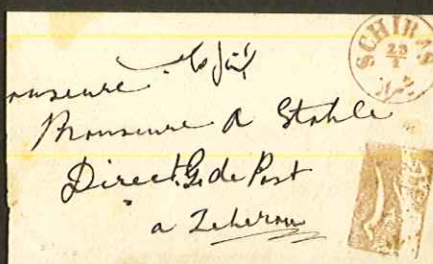 SCHIRAS
23
1
شیراز
Monsieure A Stahle
Direct. G. de Post
a Teheran